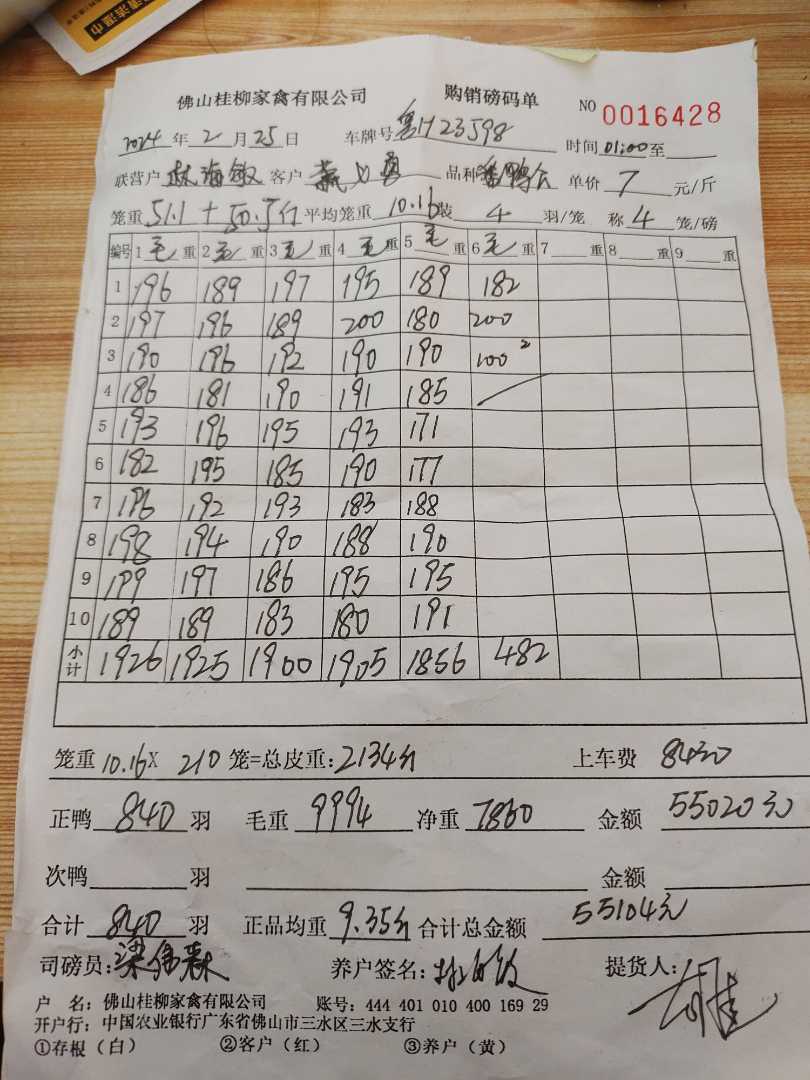 清洁湿巾
佛山桂柳家禽有限公司 购销磅码单 NO 0016428
2024 年 2 月 25 日 车牌号 粤H23598 时间 01:00 至
联营户 林海敏 客户 品种 番鸭公 单价 7 元/斤
笼重 51.1 + 50.5斤 平均笼重 10.16 装 4 羽/笼 称 4 笼/磅
编号 1 毛 重 2 毛 重 3 毛 重 4 毛 重 5 毛 重 6 毛 重 7 重 8 重 9 重
1 196 189 197 195 189 182
2 197 196 189 200 180 200
3 190 196 192 190 190 100 2
4 186 181 190 191 185
5 193 196 195 193 171
6 182 195 185 190 177
7 196 192 193 183 188
8 198 194 190 188 190
9 199 197 186 195 195
10 189 189 183 180 191
小计 1926 1925 1900 1905 1856 482
笼重 10.16 X 210 笼=总皮重: 2134斤 上车费 84元
正鸭 840 羽 毛重 9994 净重 7860 金额 55020元
次鸭 羽 金额
合计 840 羽 正品均重 9.35斤 合计总金额 55104元
司磅员: 梁伟森 养户签名: 提货人:
户 名: 佛山桂柳家禽有限公司 账号: 444 401 010 400 169 29
开户行: 中国农业银行广东省佛山市三水区三水支行
①存根(白) ②客户(红) ③养户(黄)